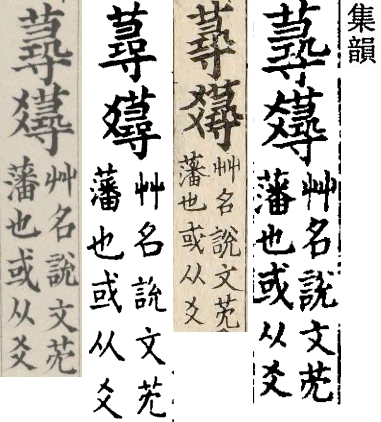 集韻
蕁
艸名說文芫
藩也或从爻
蕁
艸名說文芫
藩也或从爻
蕁
艸名說文芫
藩也或从爻
蕁
艸名說文芫
藩也或从爻